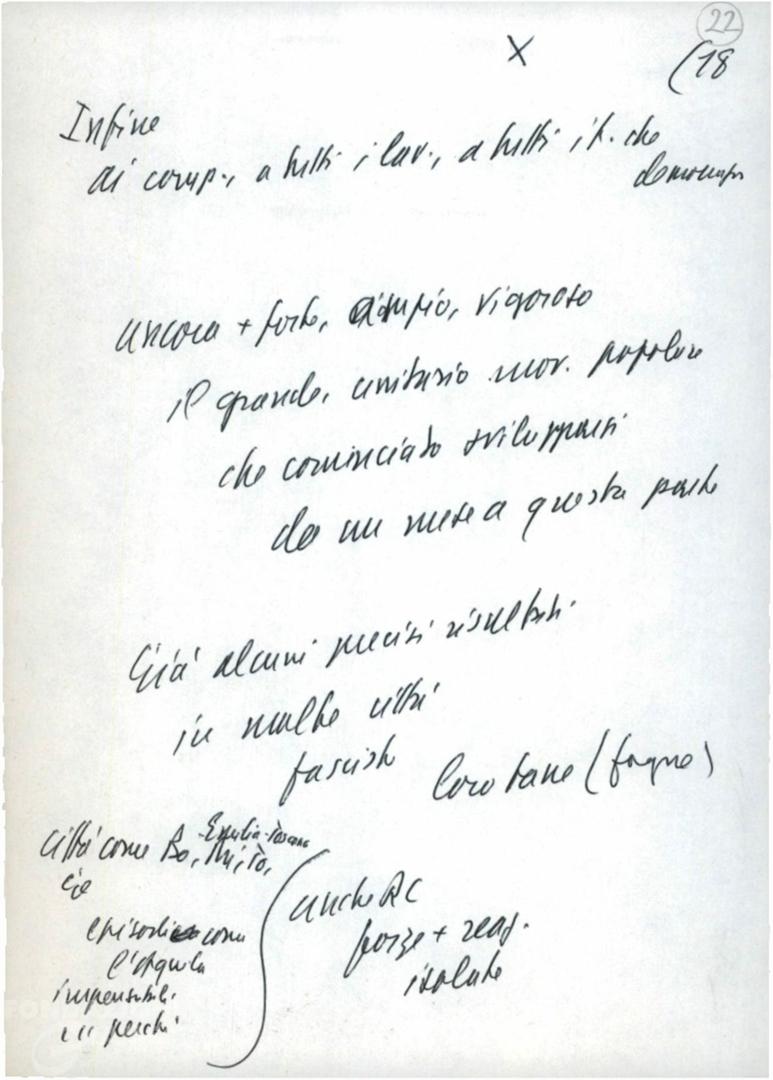 22
X
(18
Infine
ai comp., a tutti i lav., a tutti i k. che
ancora + forte, ampio, vigoroso
il grande, unitario mov. popolare
che cominciato svilupparsi
da un mese a questa parte
Già alcuni precisi risultati.
in molte città
fasciste
loro tane (fogne)
Emilia-Toscana
città come Bo, Mi, To,
episodi come
l'Aquila
impensabili.
perché
anche RC
forze + reaz.
isolate